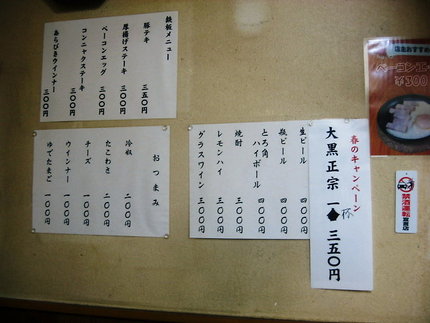 鉄板メニュー
豚テキ 三五〇円
厚揚げステーキ 三〇〇円
ベーコンエッグ 三〇〇円
コンニャクステーキ 三〇〇円
あらびきウインナー 三〇〇円
おつまみ
冷奴 二〇〇円
たこわさ 二〇〇円
チーズ 一〇〇円
ウィンナー 一〇〇円
ゆでたまご 一〇〇円
生ビール 四〇〇円
瓶ビール 四〇〇円
とろ角ハイボール 四〇〇円
焼酎 三〇〇円
レモンハイ 三〇〇円
グラスワイン 三〇〇円
春のキャンペーン
大黒正宗 一杯 三五〇円
店主おすすめ
ベーコンエッ
¥300
禁酒運転